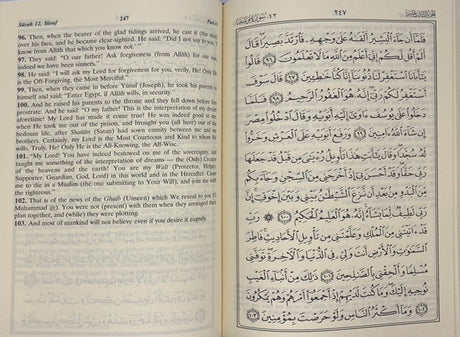 Sûrah 12. Yûsuf
247
96. Then, when the bearer of the glad tidings arrived, he cast it (the shirt)
over his face, and he became clear-sighted. He said: "Did I not say to you, 'I
know from Allâh that which you know not.'"
97. They said: "O our father! Ask forgiveness (from Allâh) for our sins,
indeed we have been sinners."
98. He said: "I will ask my Lord for forgiveness for you, verily, He! Only He
is the Oft-Forgiving, the Most Merciful."
99. Then, when they came in before Yûsuf (Joseph), he took his parents to
himself and said: "Enter Egypt, if Allâh wills, in security."
100. And he raised his parents to the throne and they fell down before him
prostrate. And he said: "O my father! This is the interpretation of my dream
aforetime! My Lord has made it come true! He was indeed good to me,
when He took me out of the prison, and brought you (all here) out of the
bedouin life, after Shaitân (Satan) had sown enmity between me and my
brothers. Certainly, my Lord is the Most Courteous and Kind to whom He
wills. Truly, He! Only He is the All-Knowing, the All-Wise.
101. "My Lord! You have indeed bestowed on me of the sovereignty, and
taught me something of the interpretation of dreams — the (Only) Creator
of the heavens and the earth! You are my Walî (Protector, Helper,
Supporter, Guardian, God, Lord) in this world and in the Hereafter. Cause
me to die as a Muslim (the one submitting to Your Will), and join me with
the righteous."
102. That is of the news of the Ghaib (Unseen) which We reveal to you (O
Muhammad ﷺ). You were not (present) with them when they arranged their
plan together, and (while) they were plotting.
103. And most of mankind will not believe even if you desire it eagerly.
٢٤٧
فَلَمَّا أَن جَاءَ الْبَشِيرُ أَلْقَاهُ عَلَىٰ وَجْهِهِ فَارْتَدَّ بَصِيرًا قَالَ
أَلَمْ أَقُل لَّكُمْ إِنِّي أَعْلَمُ مِنَ اللَّهِ مَا لَا تَعْلَمُونَ ٩٦ قَالُوا
يَا أَبَانَا اسْتَغْفِرْ لَنَا ذُنُوبَنَا إِنَّا كُنَّا خَاطِئِينَ ٩٧ قَالَ سَوْفَ
أَسْتَغْفِرُ لَكُمْ رَبِّي إِنَّهُ هُوَ الْغَفُورُ الرَّحِيمُ ٩٨ فَلَمَّا
دَخَلُوا عَلَىٰ يُوسُفَ آوَىٰ إِلَيْهِ أَبَوَيْهِ وَقَالَ ادْخُلُوا مِصْرَ
إِن شَاءَ اللَّهُ آمِنِينَ ٩٩ وَرَفَعَ أَبَوَيْهِ عَلَى الْعَرْشِ وَخَرُّوا
لَهُ سُجَّدًا وَقَالَ يَا أَبَتِ هَٰذَا تَأْوِيلُ رُؤْيَايَ مِن قَبْلُ قَدْ جَعَلَهَا
رَبِّي حَقًّا وَقَدْ أَحْسَنَ بِي إِذْ أَخْرَجَنِي مِنَ السِّجْنِ وَجَاءَ بِكُم
مِّنَ الْبَدْوِ مِن بَعْدِ أَن نَّزَغَ الشَّيْطَانُ بَيْنِي وَبَيْنَ إِخْوَتِي إِنَّ
رَبِّي لَطِيفٌ لِّمَا يَشَاءُ إِنَّهُ هُوَ الْعَلِيمُ الْحَكِيمُ ١٠٠ رَبِّ
قَدْ آتَيْتَنِي مِنَ الْمُلْكِ وَعَلَّمْتَنِي مِن تَأْوِيلِ الْأَحَادِيثِ فَاطِرَ
السَّمَاوَاتِ وَالْأَرْضِ أَنتَ وَلِيِّي فِي الدُّنْيَا وَالْآخِرَةِ تَوَفَّنِي
مُسْلِمًا وَأَلْحِقْنِي بِالصَّالِحِينَ ١٠١ ذَٰلِكَ مِنْ أَنبَاءِ الْغَيْبِ
نُوحِيهِ إِلَيْكَ وَمَا كُنتَ لَدَيْهِمْ إِذْ أَجْمَعُوا أَمْرَهُمْ وَهُمْ يَمْكُرُونَ
١٠٢ وَمَا أَكْثَرُ النَّاسِ وَلَوْ حَرَصْتَ بِمُؤْمِنِينَ ١٠٣